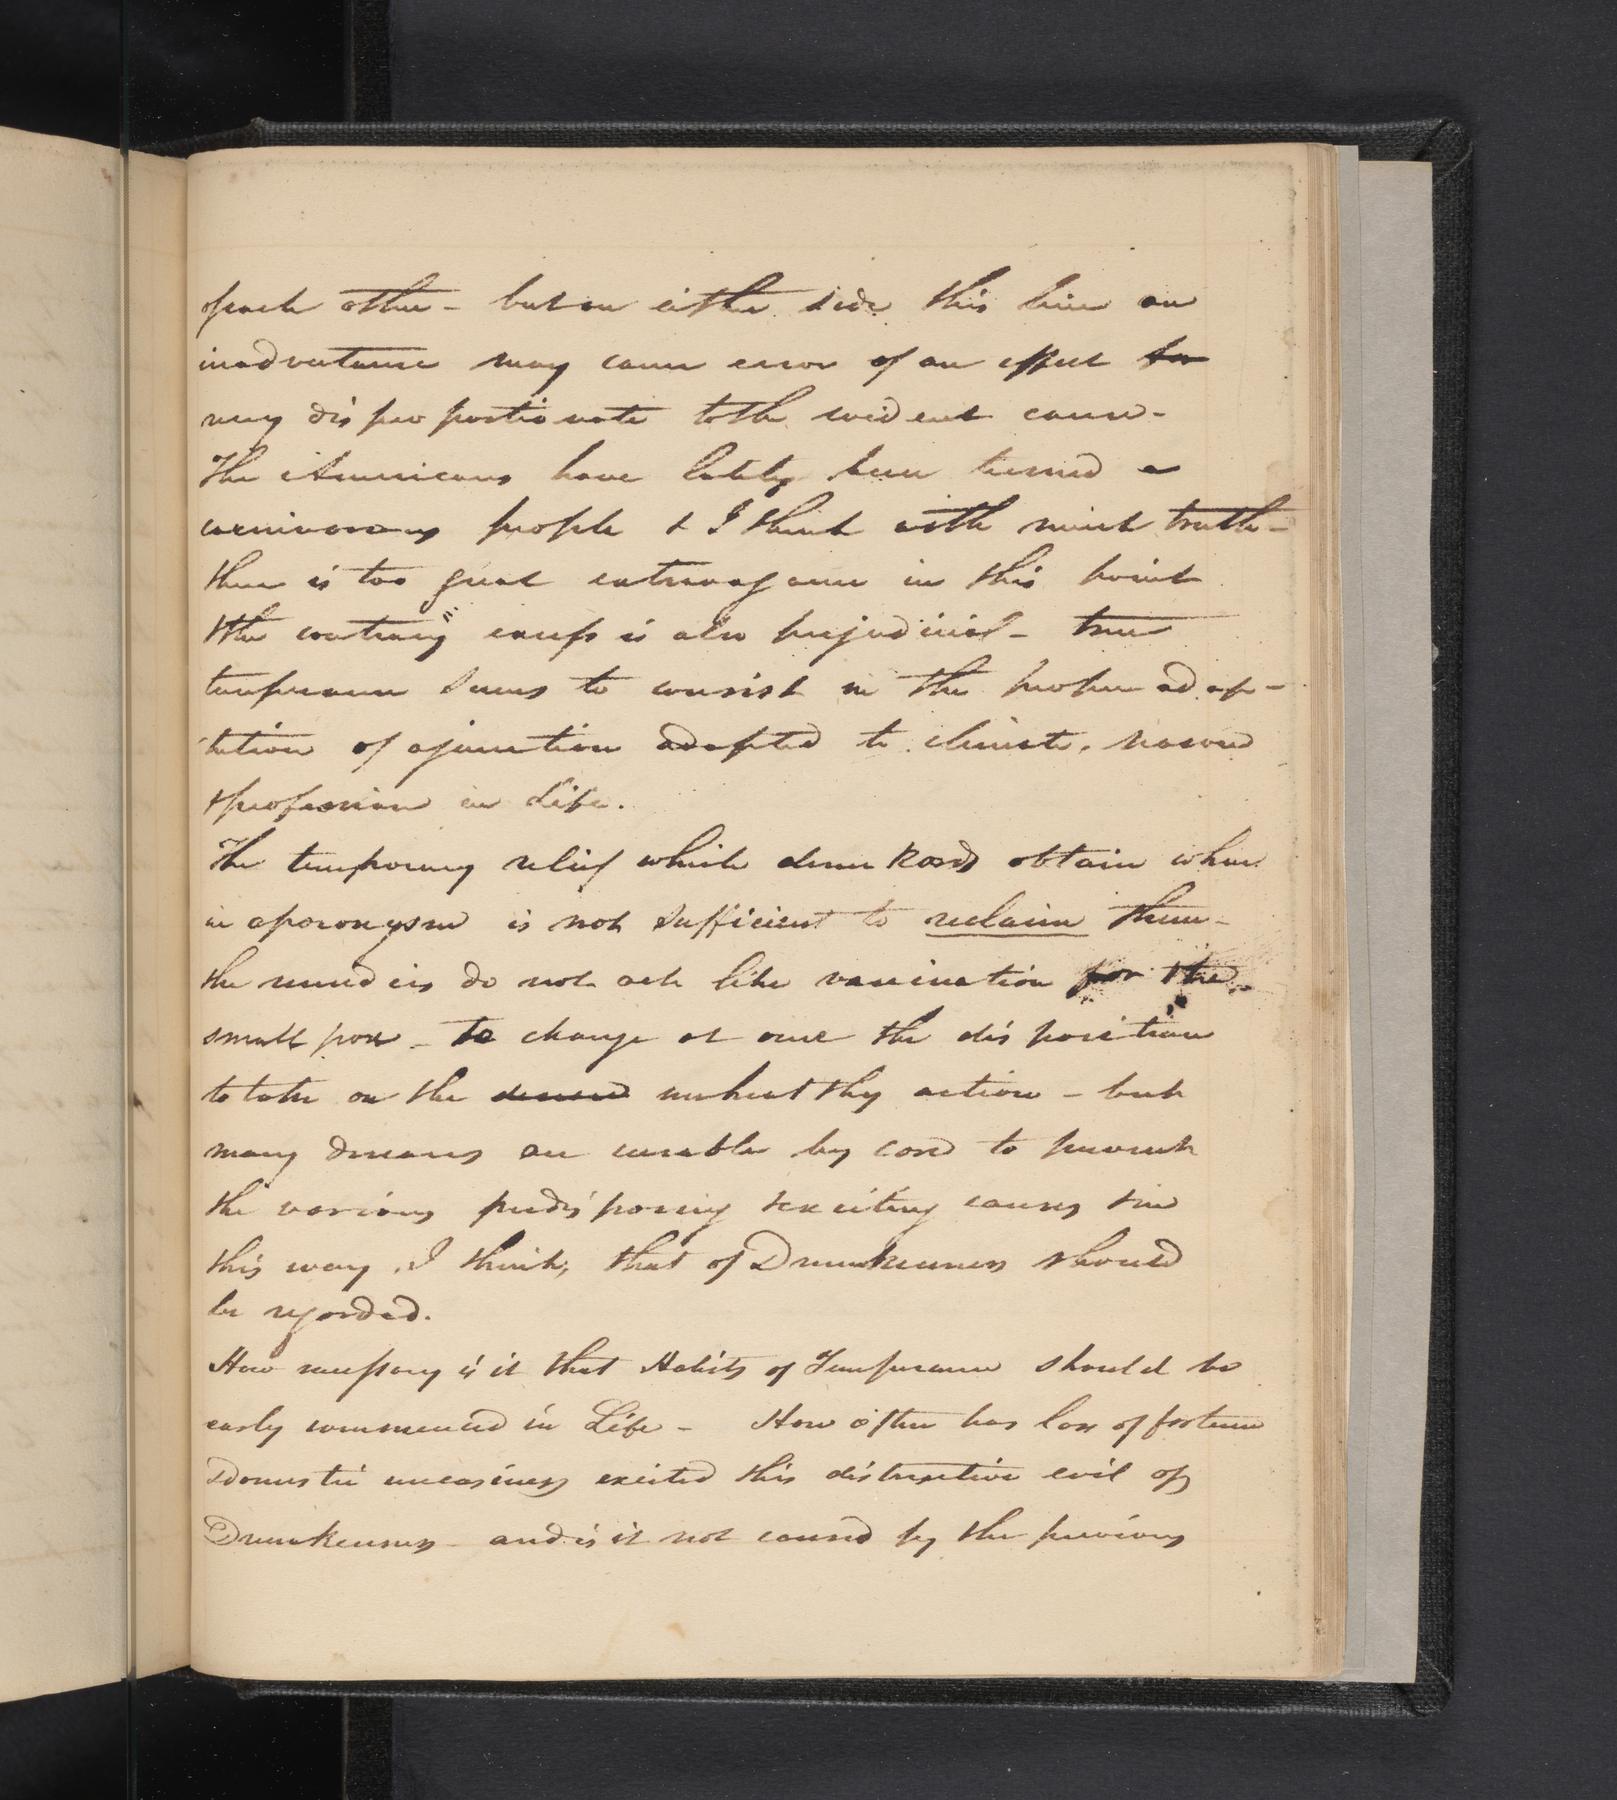 of each other - but on either side this line an
inadvertance may cause error of an effect
very disproportionate to the evident cause -
The Americans have lately been termed a
carnivorous people & I think with much truth -
there is too great extravagance in this point
& the contrary excess is also prejudicial - true
temperance seems to consist in the proper adap-
tation of adapted to climate, season
& profession in Life.
The temporary relief which drunkards obtain when
in a paroxysm is not sufficient to reclaim them -
the remedies do not act like vaccination for the
small pox - to change at once the disposition
to take on the unhealthy action - but
many diseases are curable by care to prevent
the various predisposing & exciting causes & in
this way, I think, that of Drunkenness should
be regarded.
How necessary is it that Habits of Temperance should be
early commenced in Life - How often has loss of fortune
Domestic uneasiness excited this distructive evil of
Drunkenness and is it not caused by the previous